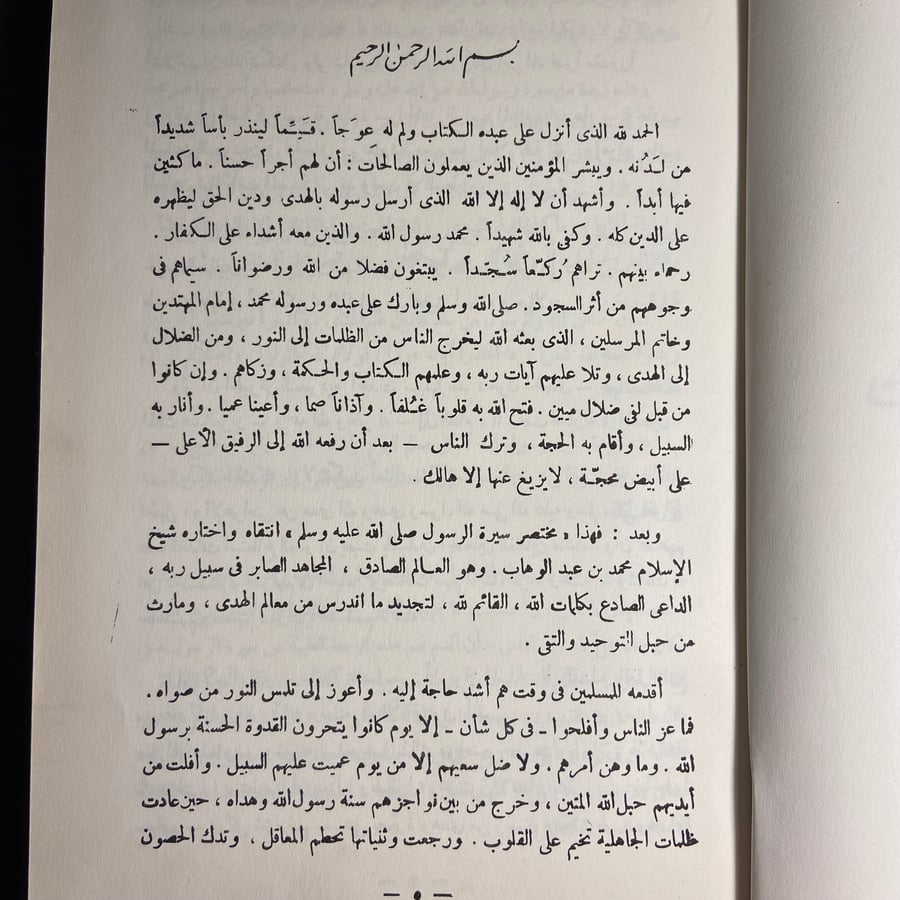 بسم الله الرحمن الرحيم
الحمد لله الذى أنزل على عبده الكتاب ولم له عِوَجاً . قَيِّماً لينذر بأساً شديداً
من لَدُنه . ويبشر المؤمنين الذين يعملون الصالحات : أن لهم أجراً حسنا . ماكثين
فيها أبداً . وأشهد أن لا إله إلا الله الذى أرسل رسوله بالهدى ودين الحق ليظهره
على الدين كله . وكفى بالله شهيداً . محمد رسول الله . والذين معه أشداء على الكفار .
رحماء بينهم . تراهم رُكّعاً سُجّداً . يبتغون فضلا من الله ورضواناً . سيماهم فى
وجوههم من أثر السجود . صلى الله وسلم وبارك على عبده ورسوله محمد ، إمام المهتدين
وخاتم المرسلين ، الذى بعثه الله ليخرج الناس من الظلمات إلى النور ، ومن الضلال
إلى الهدى ، وتلا عليهم آيات ربه ، وعلمهم الكتاب والحكمة ، وزكاهم . وإن كانوا
من قبل لفى ضلال مبين . فتح الله به قلوباً غُلفاً . وآذاناً صما ، وأعينا عميا . وأنار به
السبيل ، وأقام به الحجة ، وترك الناس — بعد أن رفعه الله إلى الرفيق الأعلى —
على أبيض محجّة ، لا يزيغ عنها إلا هالك .
وبعد : فهذا « مختصر سيرة الرسول صلى الله عليه وسلم » انتقاه واختاره شيخ
الإسلام محمد بن عبد الوهاب . وهو العالم الصادق ، المجاهد الصابر فى سبيل ربه ،
الداعى الصادع بكلمات الله ، القائم لله ، لتجديد ما اندرس من معالم الهدى ، ومارث
من حبل التوحيد والتقى .
أقدمه للمسلمين فى وقت هم أشد حاجة إليه . وأعوز إلى تلمس النور من صواه .
فما عز الناس وأفلحوا ـ فى كل شأن ـ إلا يوم كانوا يتحرون القدوة الحسنة برسول
الله . وما وهن أمرهم . ولا ضل سعيهم إلا من يوم عميت عليهم السبيل . وأفلت من
أيديهم حبل الله المتين ، وخرج من بين نواجزهم سنة رسول الله وهداه ، حين عادت
ظلمات الجاهلية تخيم على القلوب . ورجعت وثنياتها تحطم المعاقل ، وتدك الحصون
— ٥ —